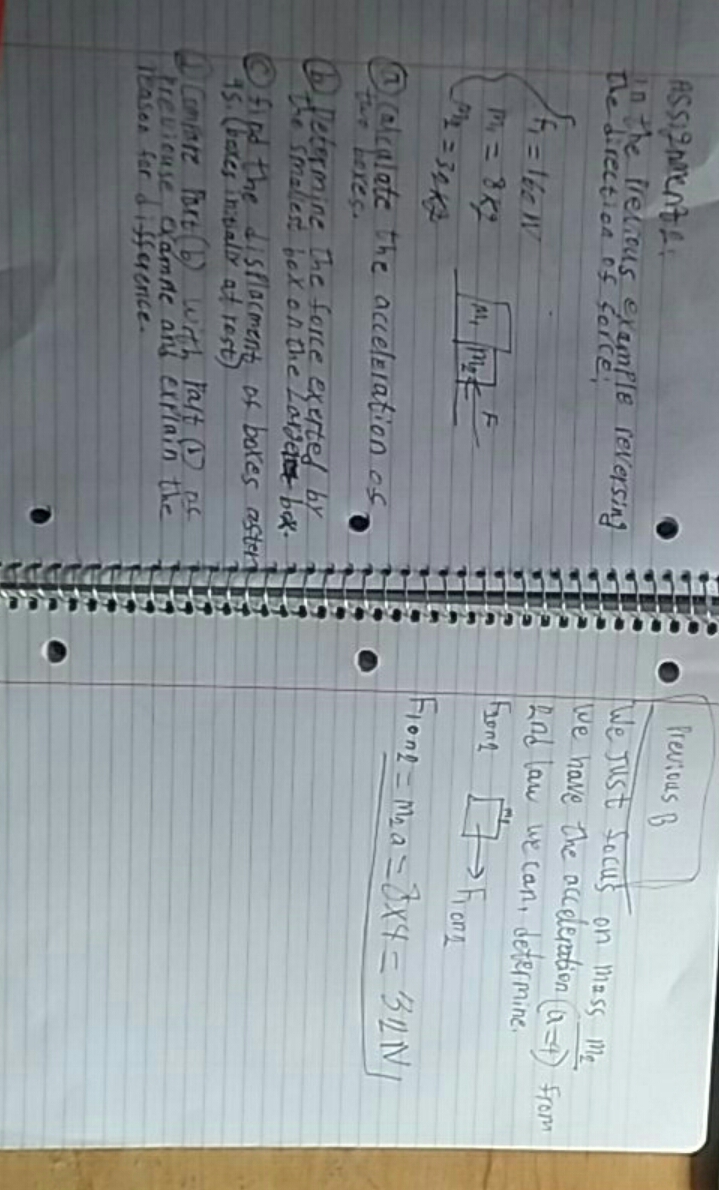 Assignment 2:
in the previous example reversing
the direction of force:
F₁ = 160 N
m₁ = 8 kg
m₂ = 32 kg
m₁ m₂ F
(a) calculate the acceleration of
two boxes.
(b) Determine the force exerted by
the smallest box on the Larger box.
(c) find the displacment of boxes after
9s. (boxes initially at rest)
(d) Compare Part (b) with Part of
previouse example and explain the
reason for difference.
Previous B
We Just focus on mass m₂
We have the acceleration (a=4) from
2nd law we can, determine.
m₂ F1on2
F1on2 = m₂a = 8x4 = 32N